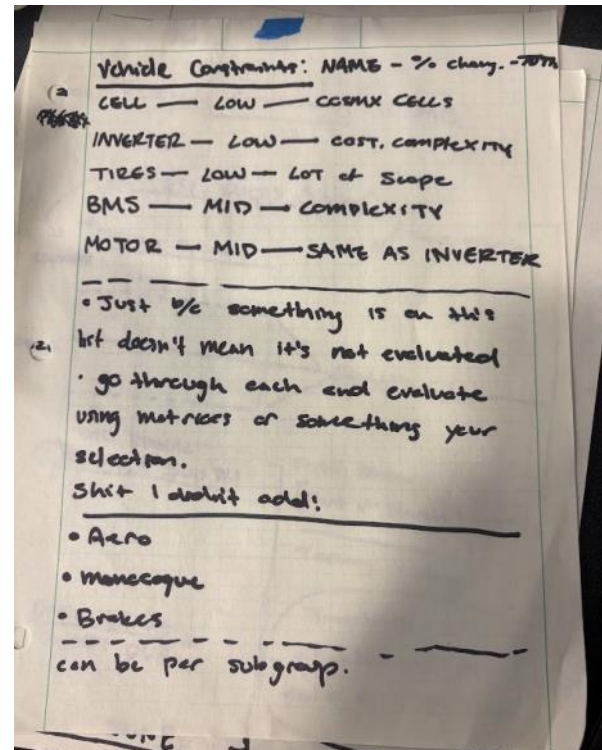 Vehicle Constraints: NAME - % chang. -
CELL — LOW — COSMX CELLS
INVERTER — LOW — COST, COMPLEXITY
TIRES — LOW — LOT of Scope
BMS — MID — COMPLEXITY
MOTOR — MID — SAME AS INVERTER
• Just b/c something is on this
list doesn't mean it's not evaluated
• go through each and evaluate
using matrices or something your
selection.
Shit I didn't add:
• Aero
• monocoque
• Brakes
can be per subgroup.